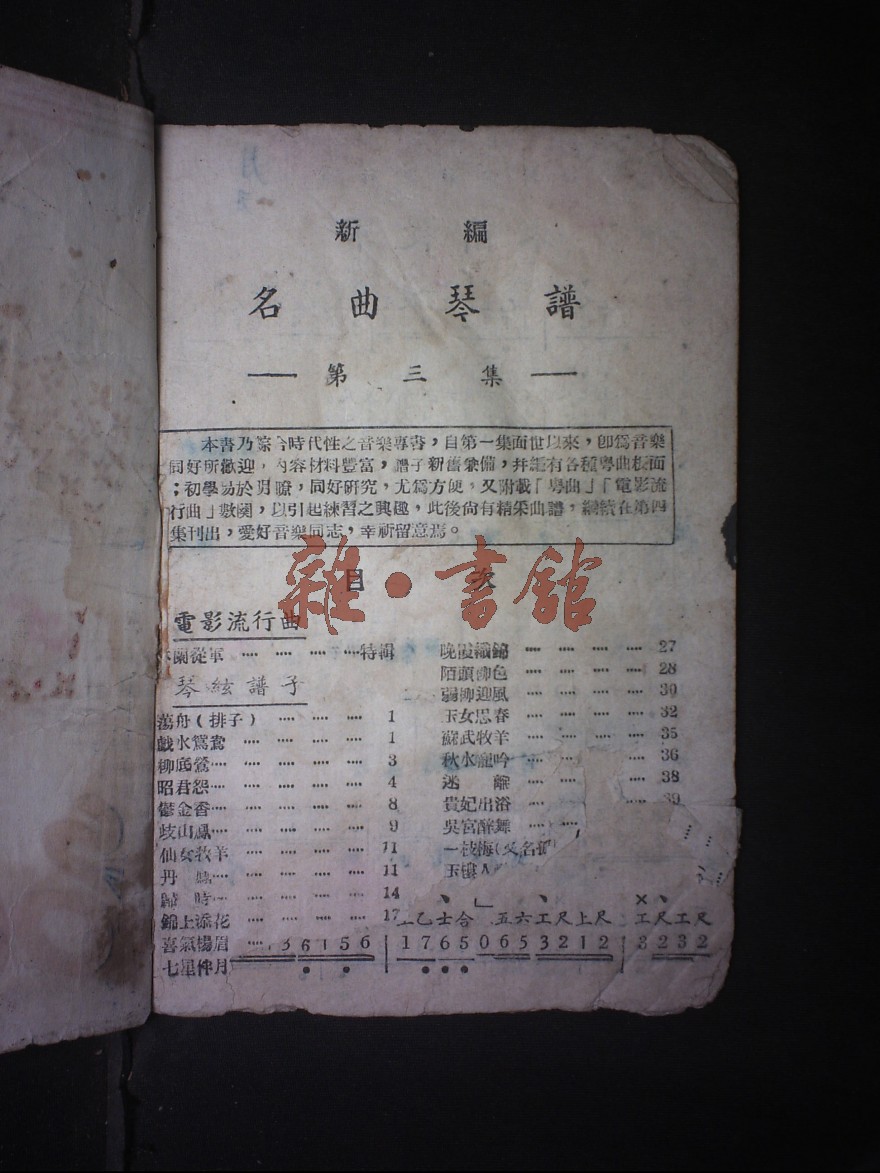 新編
名曲琴譜
第三集
本書乃綜合時代性之音樂專書，自第一集面世以來，卽爲音樂
同好所歡迎，內容材料豐富，譜子新舊兼備，幷經有各種粵曲板面
；初學易於明瞭，同好硏究，尤爲方便，又附載「粵曲」「電影流
行曲」數闋，以引起練習之興趣，此後尙有精采曲譜，繼續在第四
集刊出，愛好音樂同志，幸祈留意焉。
目次
雜·書館
電影流行曲
木蘭從軍 ···· ···· ···· ····特輯
琴絃譜子
蕩舟（排子） ···· ···· ···· 1
戲水鴛鴦 ···· ···· ···· ···· 1
柳底鶯···· ···· ···· ···· 3
昭君怨···· ···· ···· ···· 4
鬱金香···· ···· ···· ···· 8
歧山鳳···· ···· ···· ···· 9
仙女牧羊 ···· ···· ···· ···· 11
丹 ···· ···· ···· ···· 11
歸時···· ···· ···· ···· 14
錦上添花 ···· ···· ···· ···· 17
喜氣楊眉 ····
七星伴月
晚霞織錦 ···· ···· ···· ···· 27
陌頭柳色 ···· ···· ···· ···· 28
弱柳迎風 ···· ···· ···· ···· 30
玉女思春 ···· ···· ···· ···· 32
蘇武牧羊 ···· ···· ···· ···· 35
秋水龍吟 ···· ···· ···· 36
迷離 ···· ···· ···· 38
貴妃出浴 ···· ···· 39
吳宮醉舞 ···· ····
一枝梅(又名
玉
乙士合 五六工尺上尺 工尺工尺
3 6 1 5 6 1 7 6 5 0 6 5 3 2 1 2 3 2 3 2